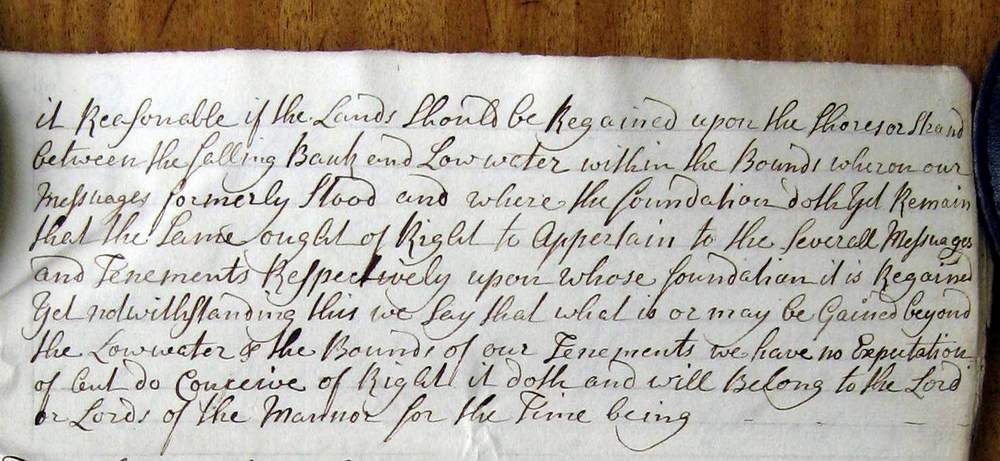 it Reasonable if the Lands should be Regained upon the shores or Strand
between the falling Bank and Low water within the Bounds wheron our
Messuages formerly Stood and where the foundation doth Yet Remain
that the Same ought of Right to Appertain to the severall Messuages
and Tenements Respectively upon whose foundation it is Regained
Yet notwithstanding this we Say that what is or may be Gained beyond
the Lowwater & the Bounds of our Tenements we have no Expectation
of but do Conceive of Right it doth and will Belong to the Lord
or Lords of the Mannor for the Time being